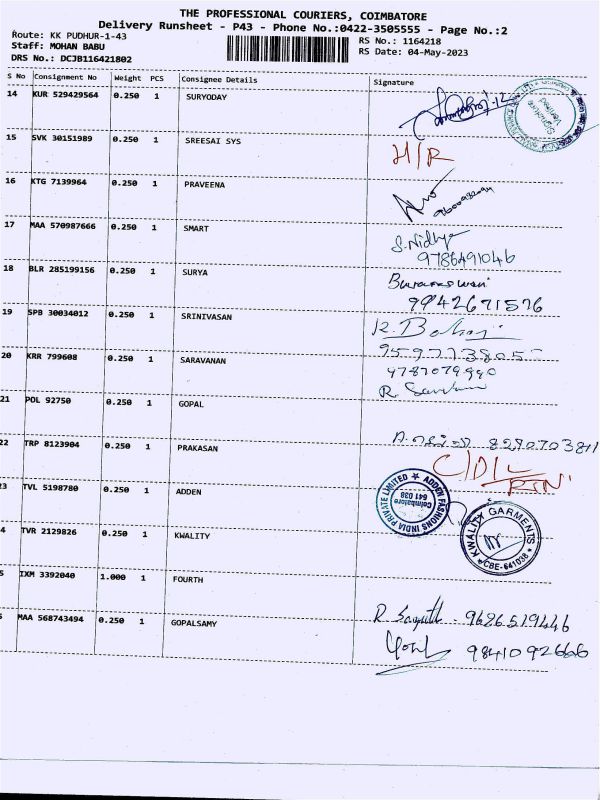 THE PROFESSIONAL COURIERS, COIMBATORE
Delivery Runsheet - P43 - Phone No.:0422-3505555 - Page No.:2
Route: KK PUDHUR-1-43
Staff: MOHAN BABU
DRS No.: DCJB116421802
RS No.: 1164218
RS Date: 04-May-2023
S No Consignment No Weight PCS Consignee Details Signature
14 KUR 529429564 0.250 1 SURYODAY
Signature Verified
15 SVK 30151989 0.250 1 SREESAI SYS H/R
16 KTG 7139964 0.250 1 PRAVEENA
17 MAA 570987666 0.250 1 SMART S. Nidhya
9786491046
18 BLR 285199156 0.250 1 SURYA
9942671526
19 SPB 30034012 0.250 1 SRINIVASAN
20 KRR 799608 0.250 1 SARAVANAN
21 POL 92750 0.250 1 GOPAL
22 TRP 8123904 0.250 1 PRAKASAN C/D/L
RTN
23 TVL 5198780 0.250 1 ADDEN
ADDEN FASHIONS INDIA PRIVATE LIMITED
Coimbatore
641 038
4 TVR 2129826 0.250 1 KWALITY
KWALITY GARMENTS
CBE-641038
5 IXM 3392040 1.000 1 FOURTH
MAA 568743494 0.250 1 GOPALSAMY
9626519446
9841092666